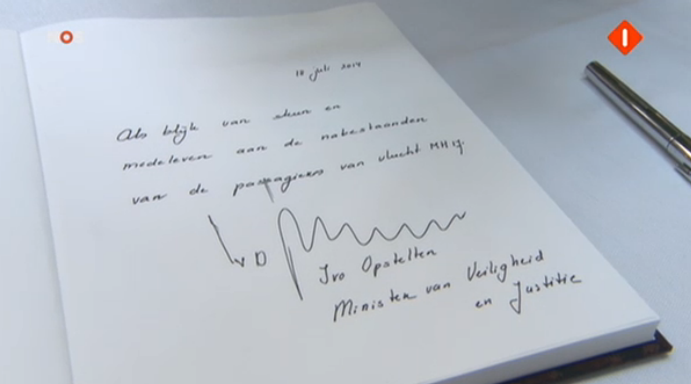 18 juli 2014
Als blijk van steun en
medeleven aan de nabestaanden
van de passagiers van vlucht MH17.
Ivo Opstelten
Minister van Veiligheid
en Justitie